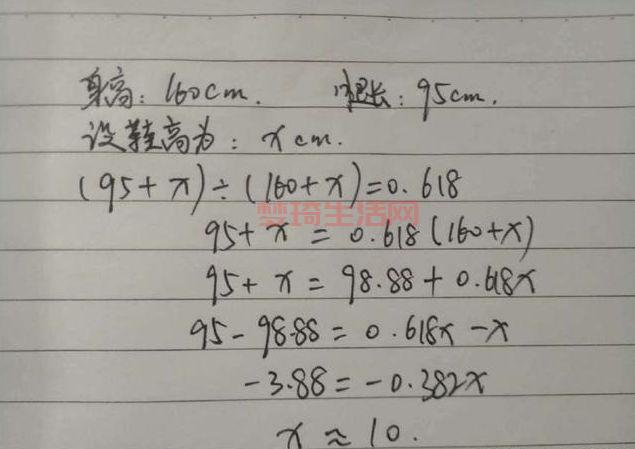 身高：160cm.　腿长：95cm.
设鞋高为：x cm.
(95+x)÷(160+x)=0.618
梦琦生活网
95+x=0.618(160+x)
95+x=98.88+0.618x
95-98.88=0.618x-x
-3.88=-0.382x
x≈10.